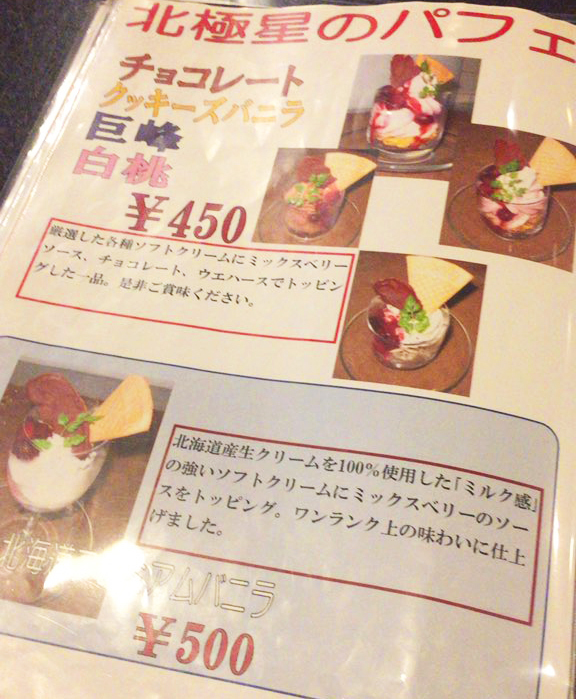 北極星のパフェ
チョコレート
クッキーズバニラ
巨峰
白桃
￥450
厳選した各種ソフトクリームにミックスベリー
ソース、チョコレート、ウエハースでトッピン
グした一品。是非ご賞味ください。
北海道産生クリームを100%使用した「ミルク感」
の強いソフトクリームにミックスベリーのソー
スをトッピング。ワンランク上の味わいに仕上
げました。
北海道 アムバニラ
￥500